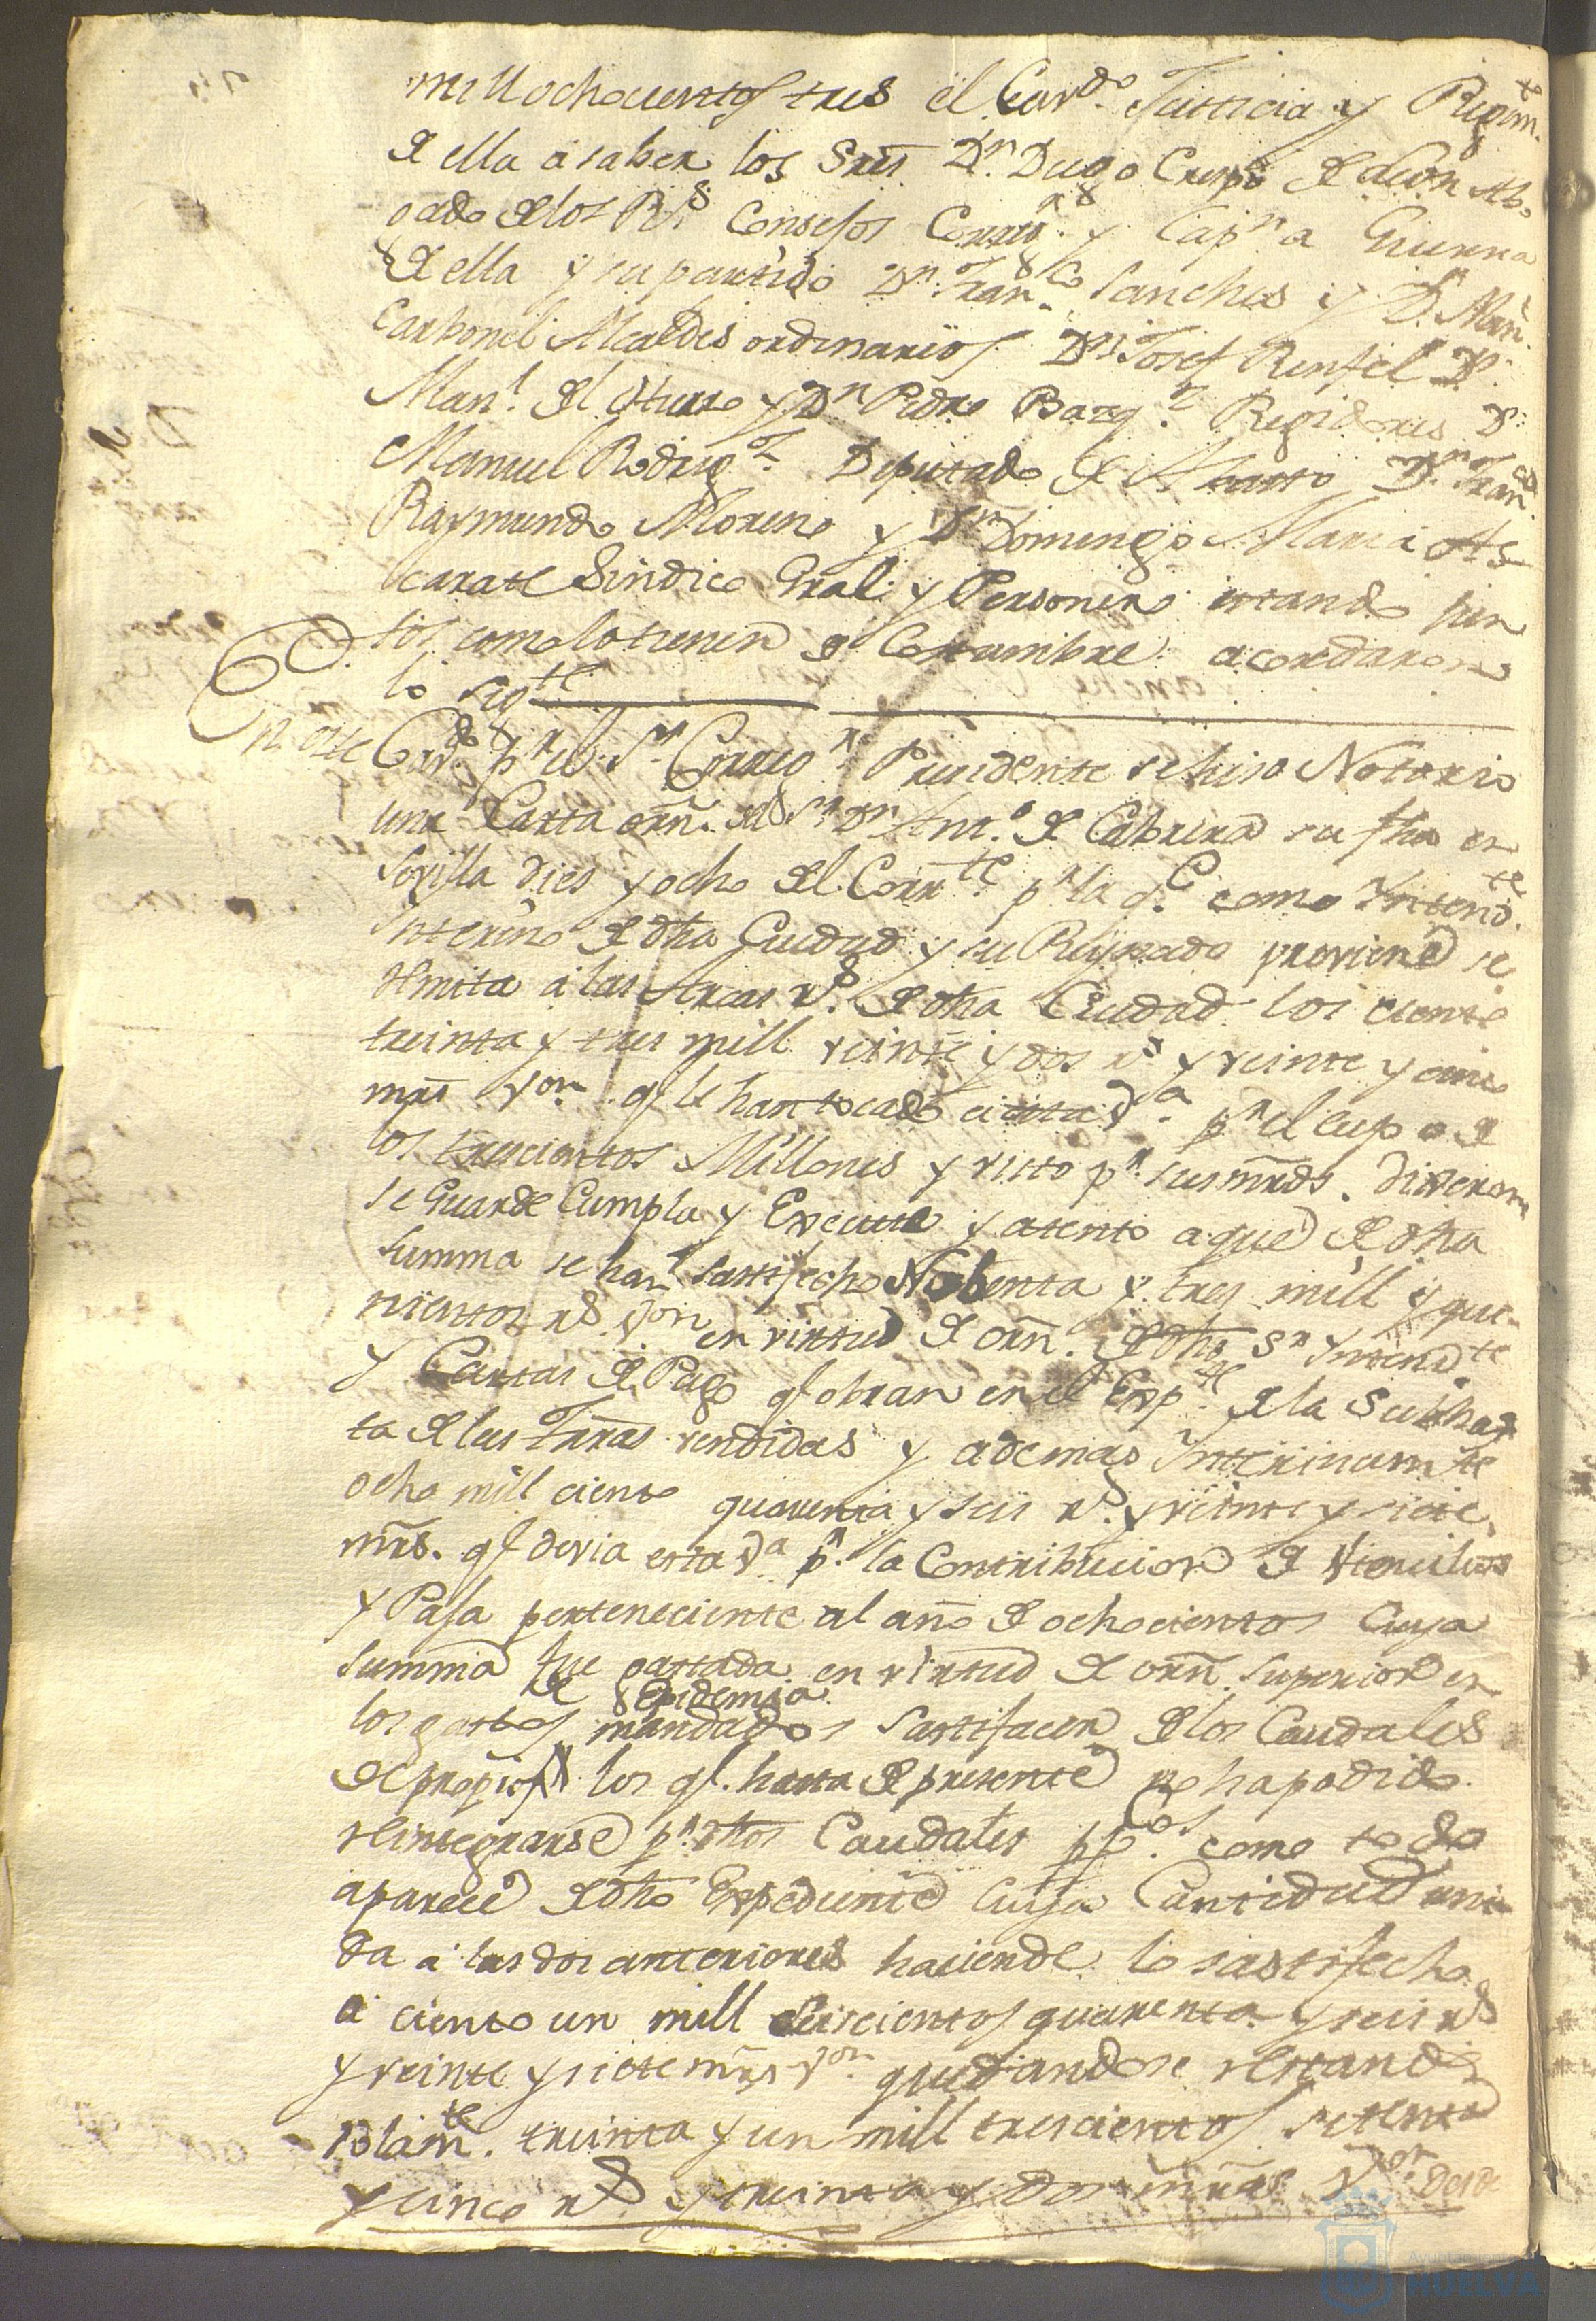 mill ochocientos tres el Cavdo. Justicia y Regimto.
de ella á saber los Sres. Dn. Diego Crespo de Leon Abo
gado de los Rs. Consejos Corregr. y Capn. a Guerra
de ella y su partido Dn. Franco. Sanches y Dn. Man.
Carbonel Alcaldes ordinarios Dn. Josef Renfel Dn.
Manl. del Hierro y Dn. Pedro Bazqz. Regidores Dn.
Manuel Rodrigz. Diputado de Abasto Dn. Franco.
Raymundo Moreno y Dn. Domingo Maria As
carate Sindico Gral. y Personero estando jun
tos como lo tienen de Costumbre acordaron
lo sigte.
En este Cavdo. pr. el Sr. Corregr. Precidente se hiso Notorio
una Carta orn. del Sr. Dn. Anto. de Cabrera su fha en
Sevilla dies y ocho del Corrte. pr. la qe. como Intendte.
Interino de dha Ciudad y su Reynado previene se
remita á las Arcas rs. de dha Ciudad los ciento
treinta y tres mill veinte y dos rs. y veinte y cinco
mrs. von. q. le han tocado a esta va. pr. el cupo de
los trescientos Millones y visto pr. sus mrds. Dixeron
se Guarde Cumpla y Execute y atento a que de dha
summa se han satisfecho Nobenta y tres mill y qui
nientos rs. von. en virtud de orn. de dho Sr. Intendte.
y Cartas de Pago q. obran en el Expte. de la Subhas
ta de las Tierras vendidas y ademas Interinamte.
ocho mill ciento quarenta y seis rs. y veinte y siete
mrs. q. devia esta va. pr. la Contribucion de Utencilios
y Paja perteneciente al año de ochocientos Cuya
summa fue gastada en virtud de orn. superior en
los gastos de Epidemia mandados sastifacer de los Caudales
de propios los q. hasta de presente no ha podido
reintegrarse pr. dhos Caudales ppcos. como todo
aparece de dho Expediente Cuya Cantidad uni
da á las dos anteriores haciende lo sastifecho
a ciento un mill seiscientos quarenta y seis rs.
y veinte y siete mrs. von. quedandose restando
solamte. treinta y un mill trescientos setenta
y cinco rs. y treinta y dos mrs. von. desde
Ayuntamiento
HUELVA